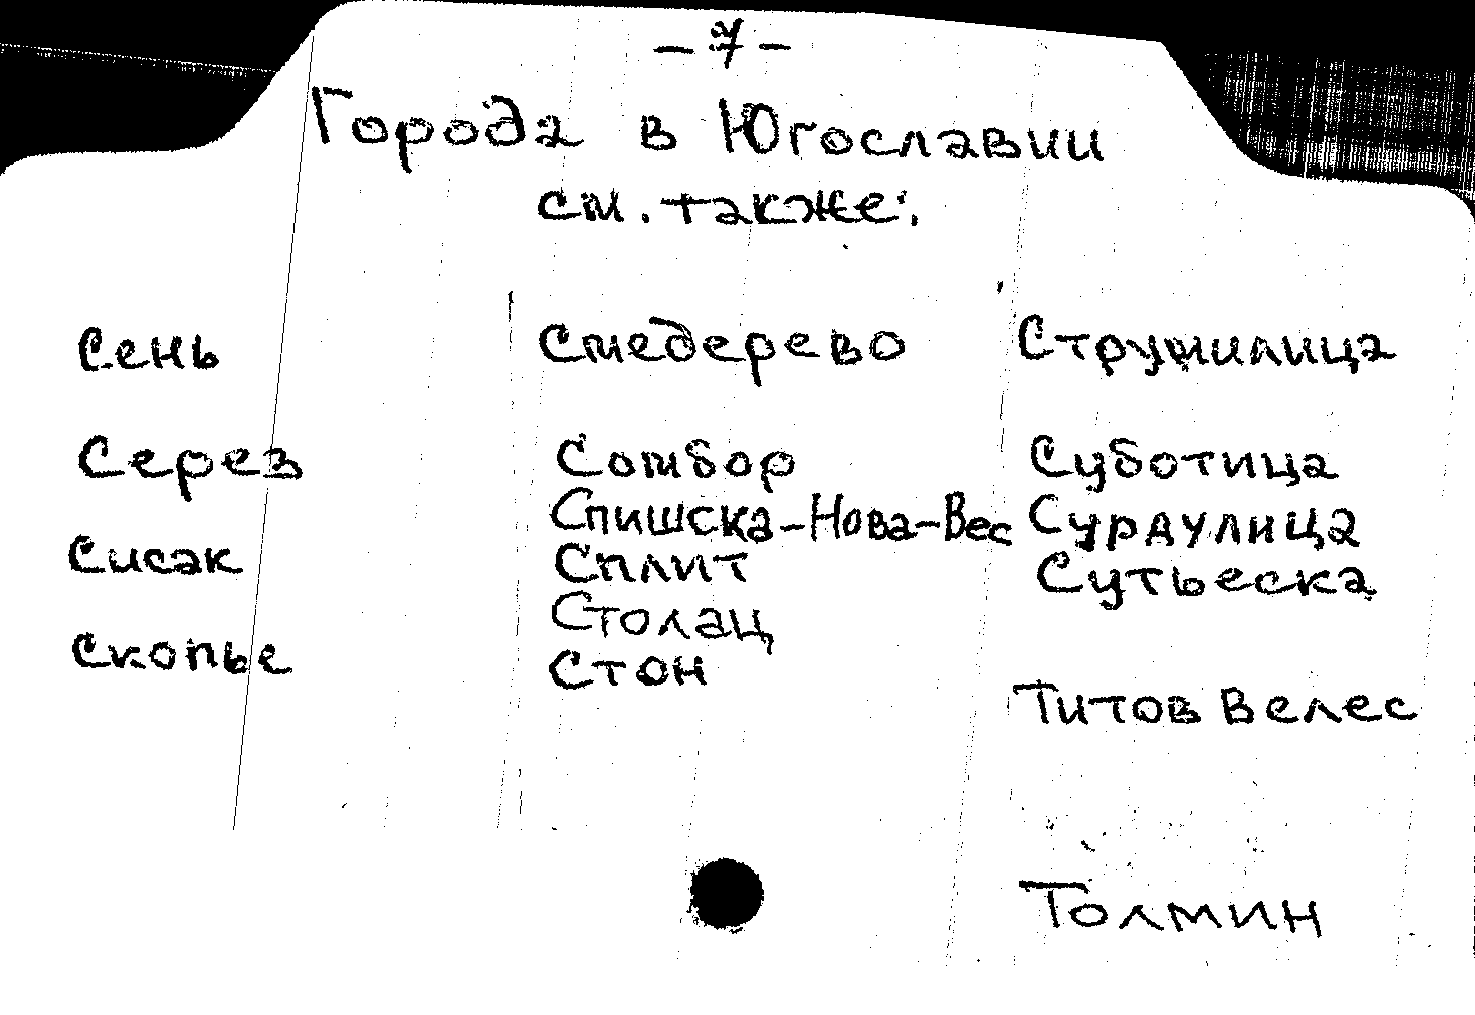 - 7 -
Города в Югославии
см. также:
Сень
Серез
Сисак
Скопье
Смедерево
Сомбор
Спишска-Нова-Вес
Сплит
Столац
Стон
Струмилица
Суботица
Сурдулица
Сутьеска
Титов Велес
Толмин